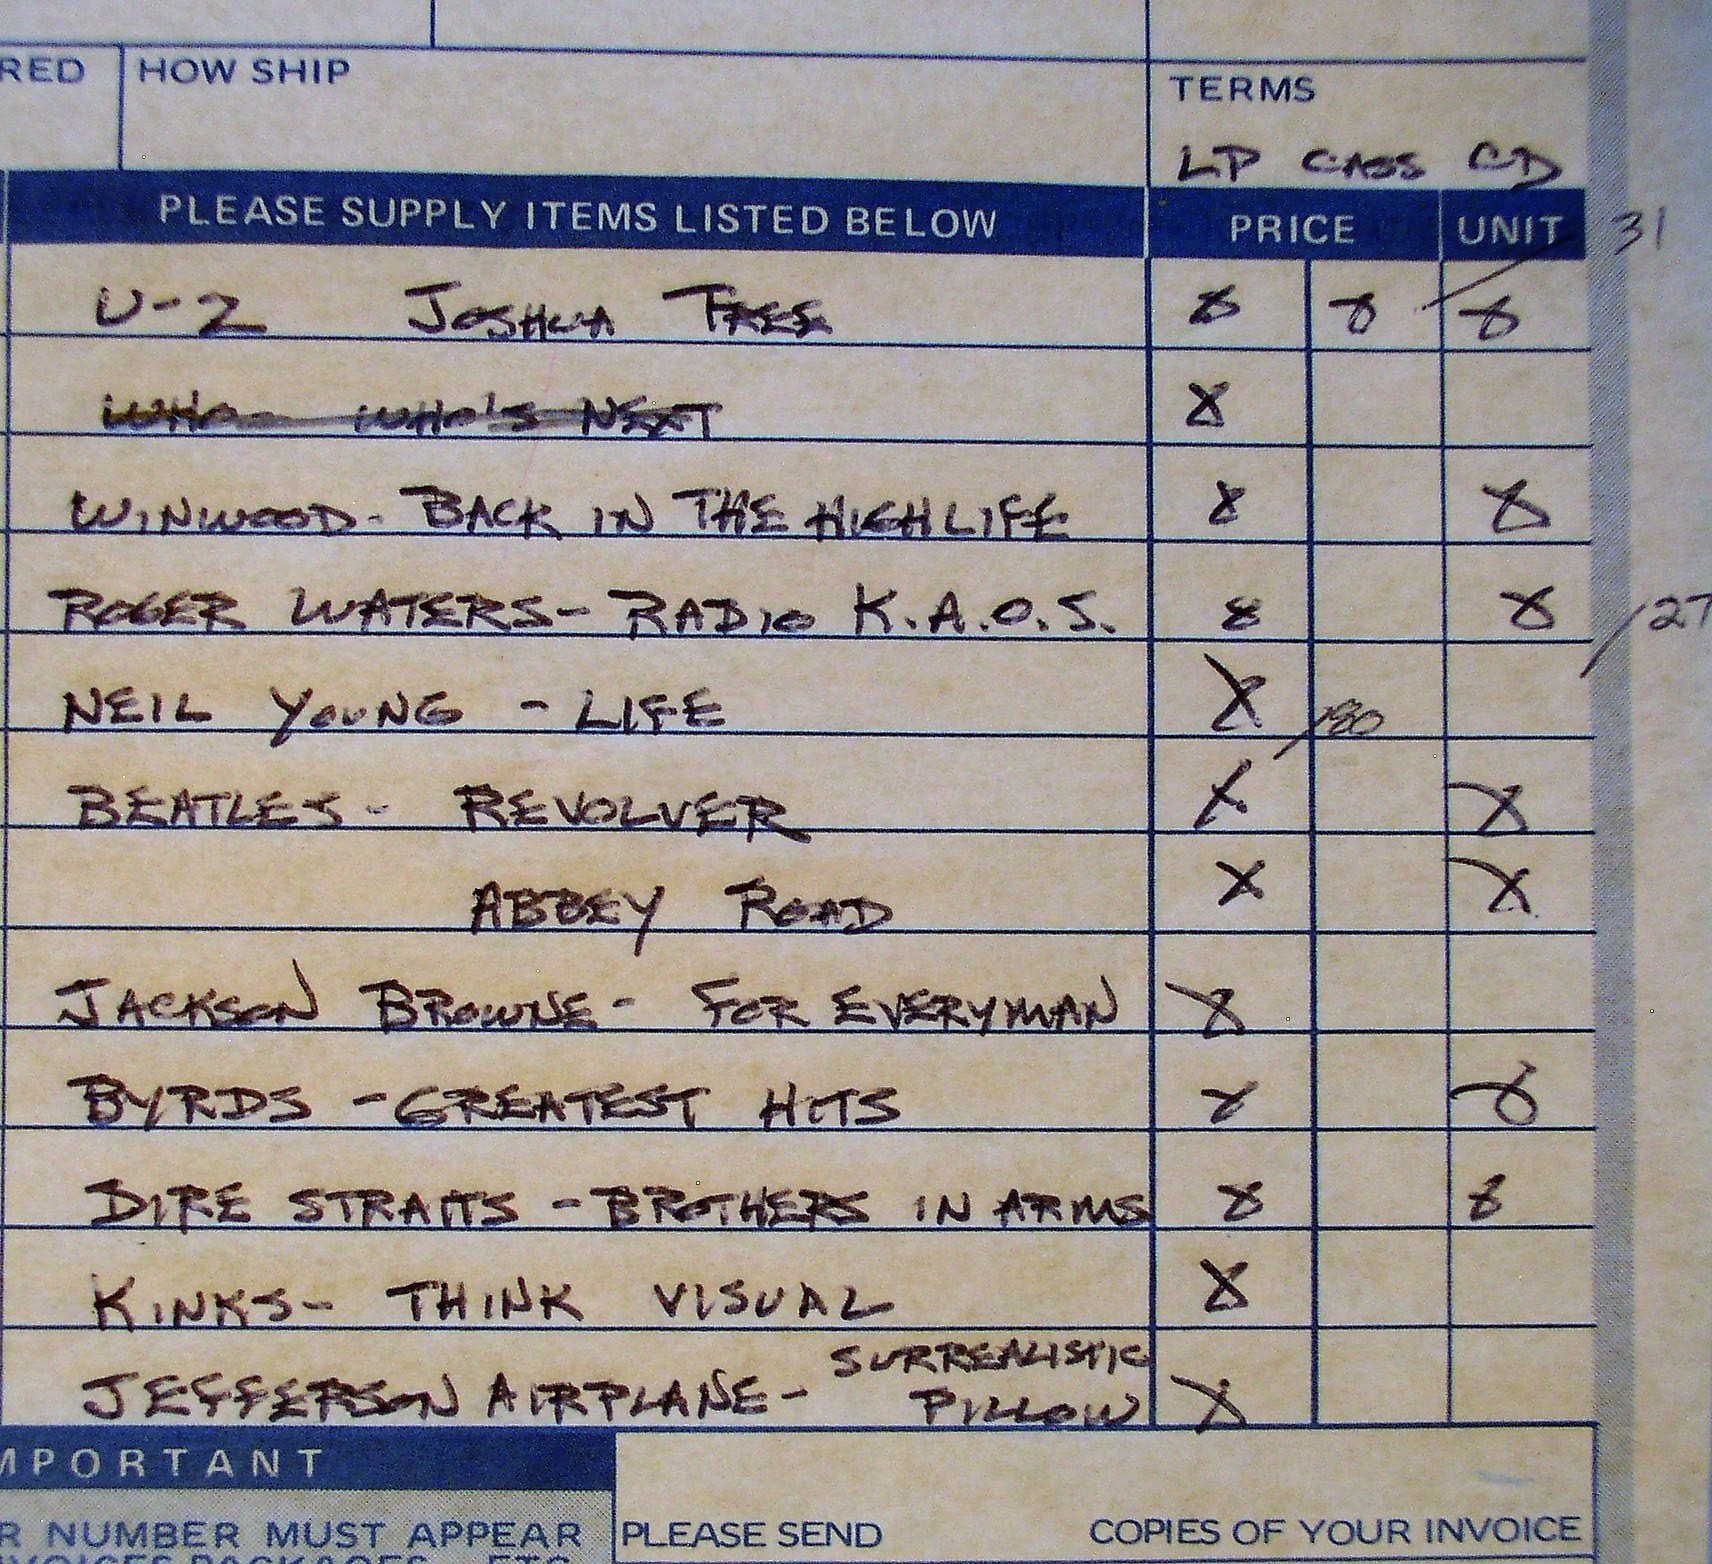 RED HOW SHIP TERMS
LP CASS CD
PLEASE SUPPLY ITEMS LISTED BELOW PRICE UNIT 31
U-2 JOSHUA TREE X X X
WHO WHO'S NEXT X
WINWOOD- BACK IN THE HIGHLIFE X X
ROGER WATERS- RADIO K.A.O.S. X X /27
NEIL YOUNG - LIFE X /180
BEATLES- REVOLVER X X
ABBEY ROAD X X
JACKSON BROWNE- FOR EVERYMAN X
BYRDS -GREATEST HITS X X
DIRE STRAITS -BROTHERS IN ARMS X X
KINKS- THINK VISUAL X
JEFFERSON AIRPLANE- SURREALISTIC
PILLOW X
MPORTANT
R NUMBER MUST APPEAR PLEASE SEND COPIES OF YOUR INVOICE